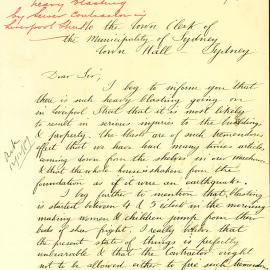 heavy blasting
by sewer Contractor in
Liverpool Street
To the Town Clerk of
the Municipality of Sydney
Town Hall Sydney
Dear Sir,
I beg to inform you that
there is such heavy blasting going on
in Liverpool Street that it is most likely
to result in serious injuries to the building
& property. The blasts are of such tremendous
effect that we have had many times articles
coming down from the shelves in our
& that the whole house shakes from the
foundation as if it were an earthquake.
I beg further to mention that blasting
is started between 4 & 5 o'clock in the morning
making women & children jump from their
beds of sheer fright. I really that
the present state of things is perfectly
unbearable & that the Contractor ought
not to be allowed either to fire such tremendous